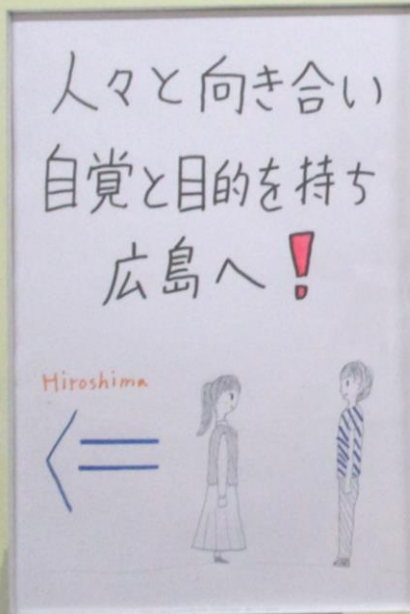 人々と向き合い
自覚と目的を持ち
広島へ!
Hiroshima